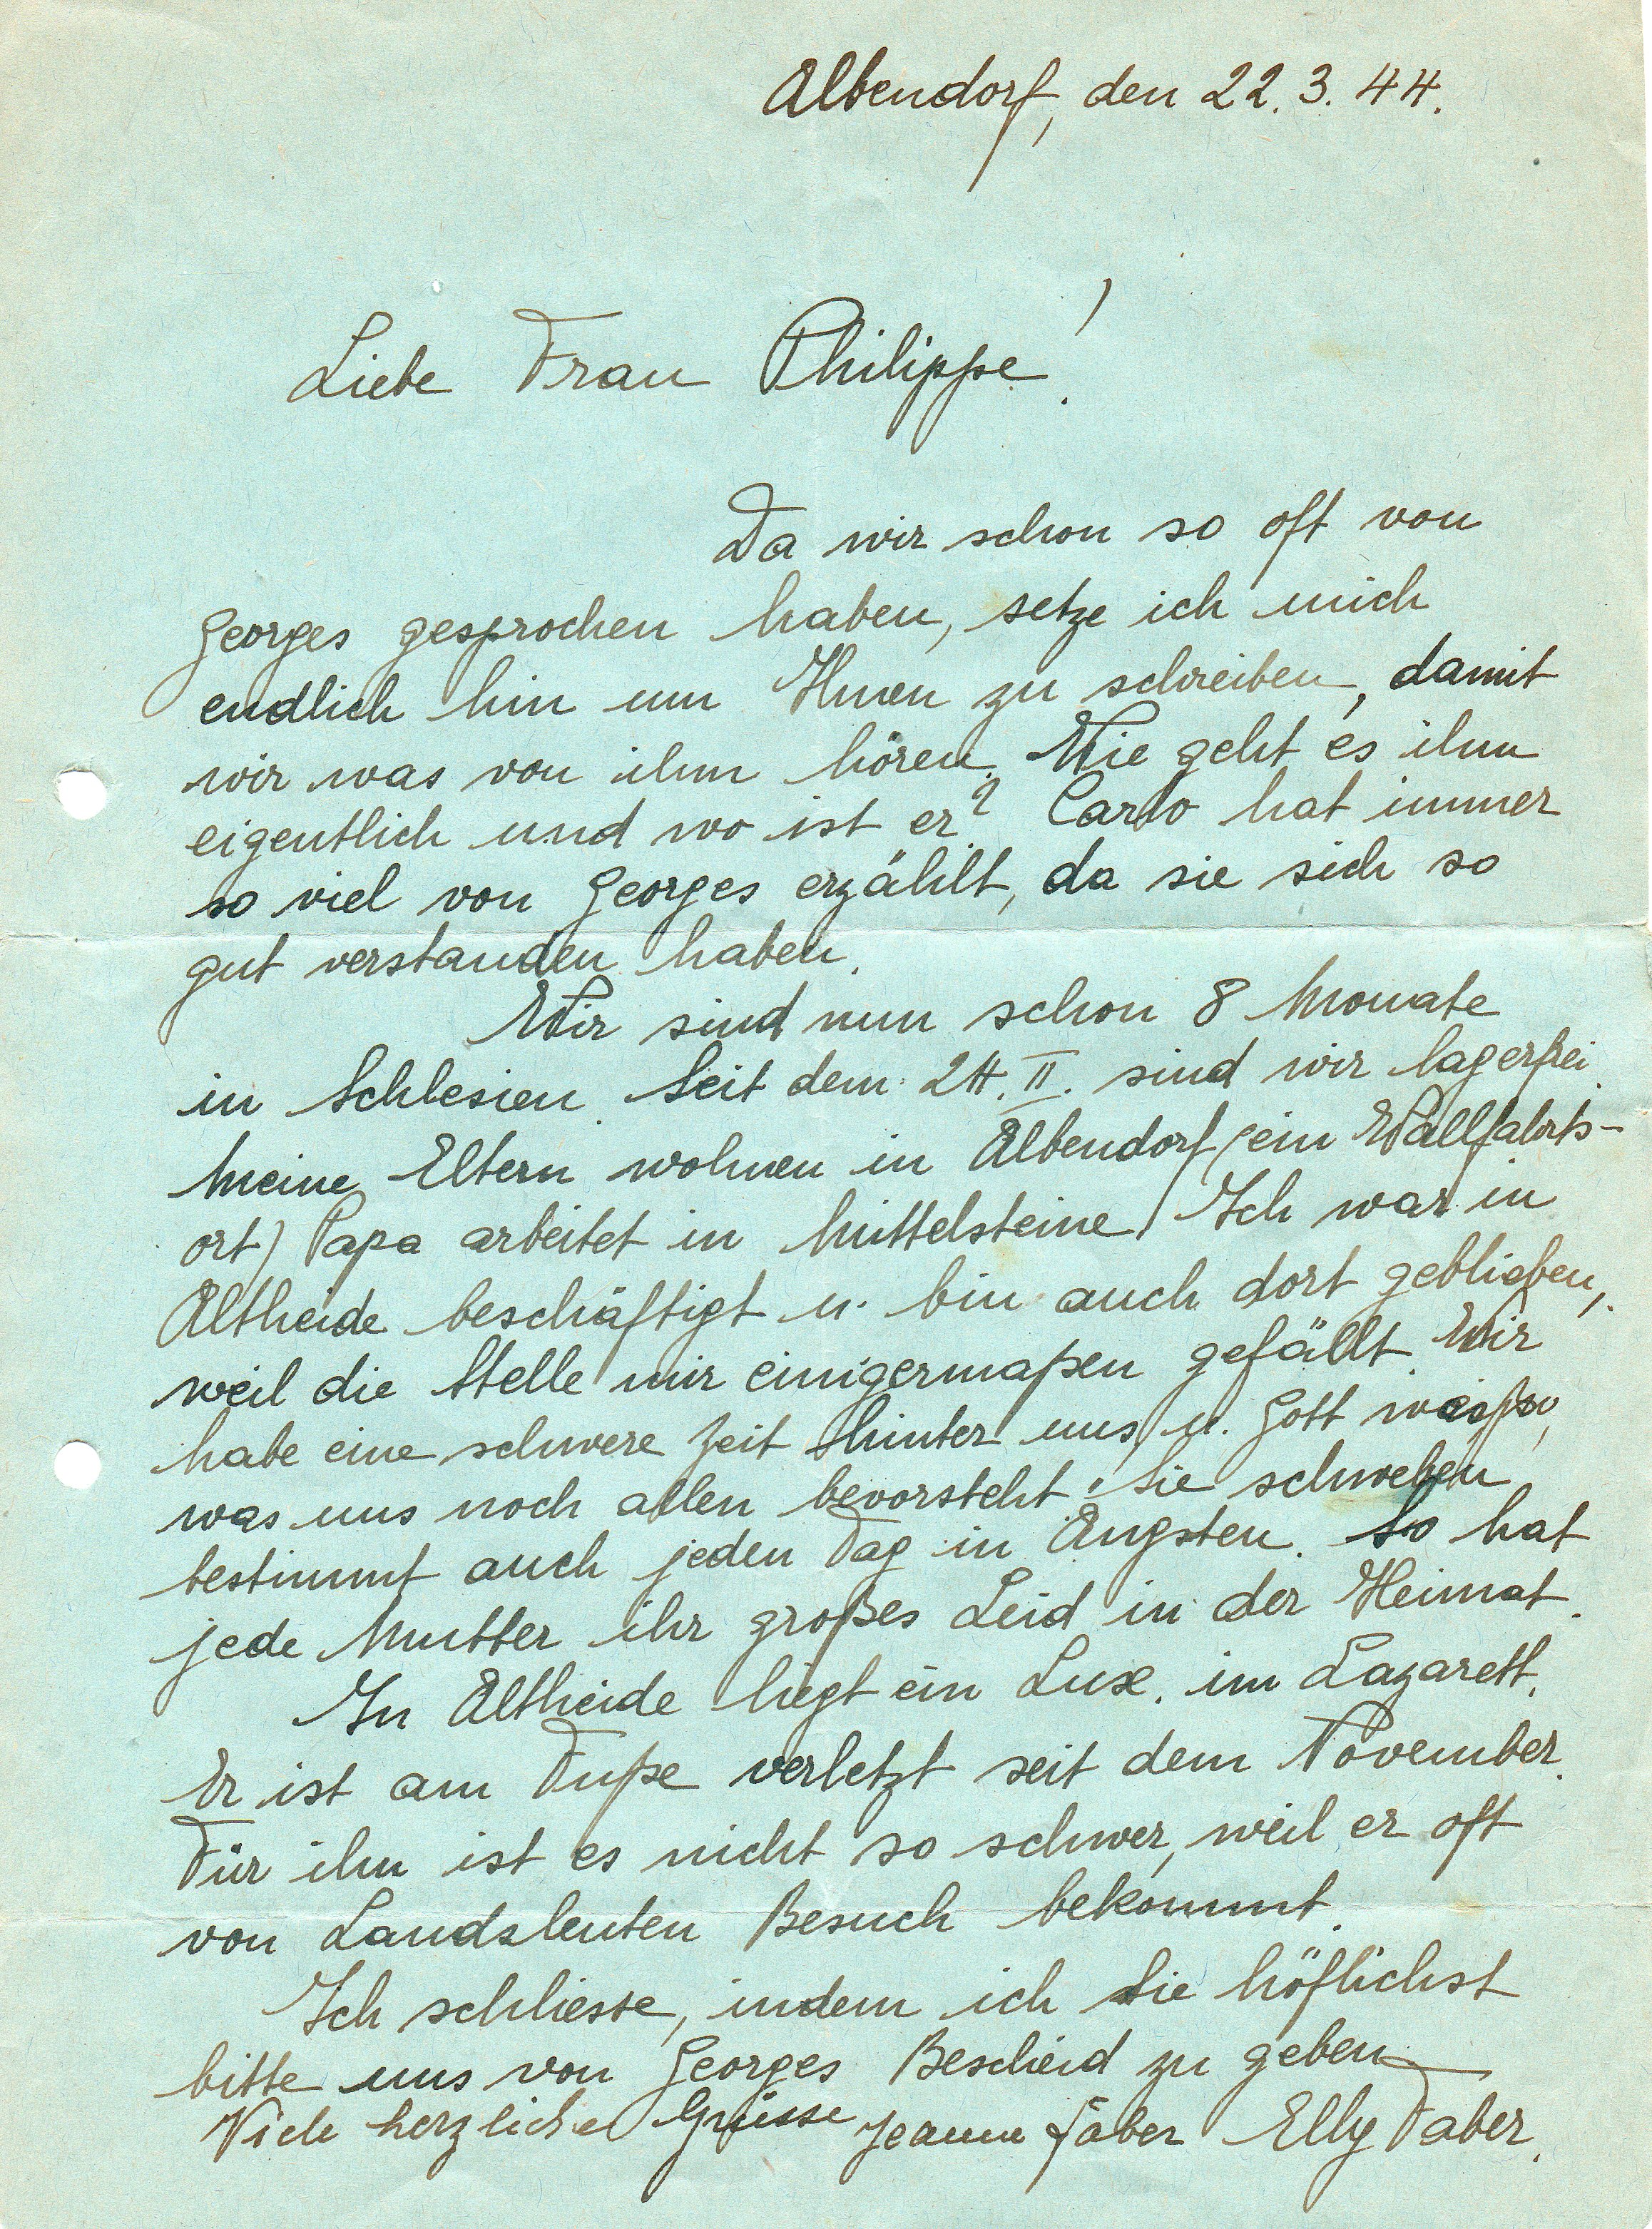 Albendorf, den 22. 3. 44.
Liebe Frau Philippe!
Da wir schon so oft von
Georges gesprochen haben, setze ich mich
endlich hin um Ihnen zu schreiben, damit
wir was von ihm hören. Wie geht es ihm
eigentlich und wo ist er? Carlo hat immer
so viel von Georges erzählt, da sie sich so
gut verstanden haben.
Wir sind nun schon 8 Monate
in Schlesien. Seit dem 24. II. sind wir lagerfrei.
Meine Eltern wohnen in Albendorf (ein Wallfahrts-
ort) Papa arbeitet in Mittelsteine. Ich war in
Altheide beschäftigt u. bin auch dort geblieben,
weil die Stelle mir einigermaßen gefällt. Wir
habe eine schwere Zeit hinter uns, u. Gott weiß,
was uns noch allen bevorsteht. Sie schweben
bestimmt auch jeden Tag in Ängsten. So hat
jede Mutter ihr großes Leid in der Heimat.
In Altheide liegt ein Lux. im Lazarett.
Er ist am Fuße verletzt seit dem November.
Für ihn ist es nicht so schwer, weil er oft
von Landsleuten Besuch bekommt.
Ich schliesse, indem ich Sie höflichst
bitte uns von Georges Bescheid zu geben
Viele herzliche Grüsse Jeanne Faber Elly Faber.